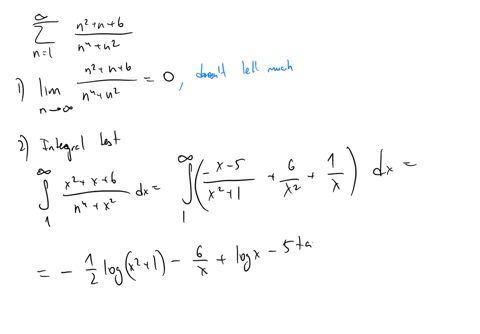 ∞
∑ (n²+n+6)/(n⁴+n²)
n=1
1) lim n→∞ (n²+n+6)/(n⁴+n²) = 0, doesn't tell much
2) Integral test
∫₁^∞ (x²+x+6)/(n⁴+x²) dx = ∫₁^∞ ((-x-5)/(x²+1) + 6/x² + 1/x) dx =
= - 1/2 log(x²+1) - 6/x + log x - 5 ta